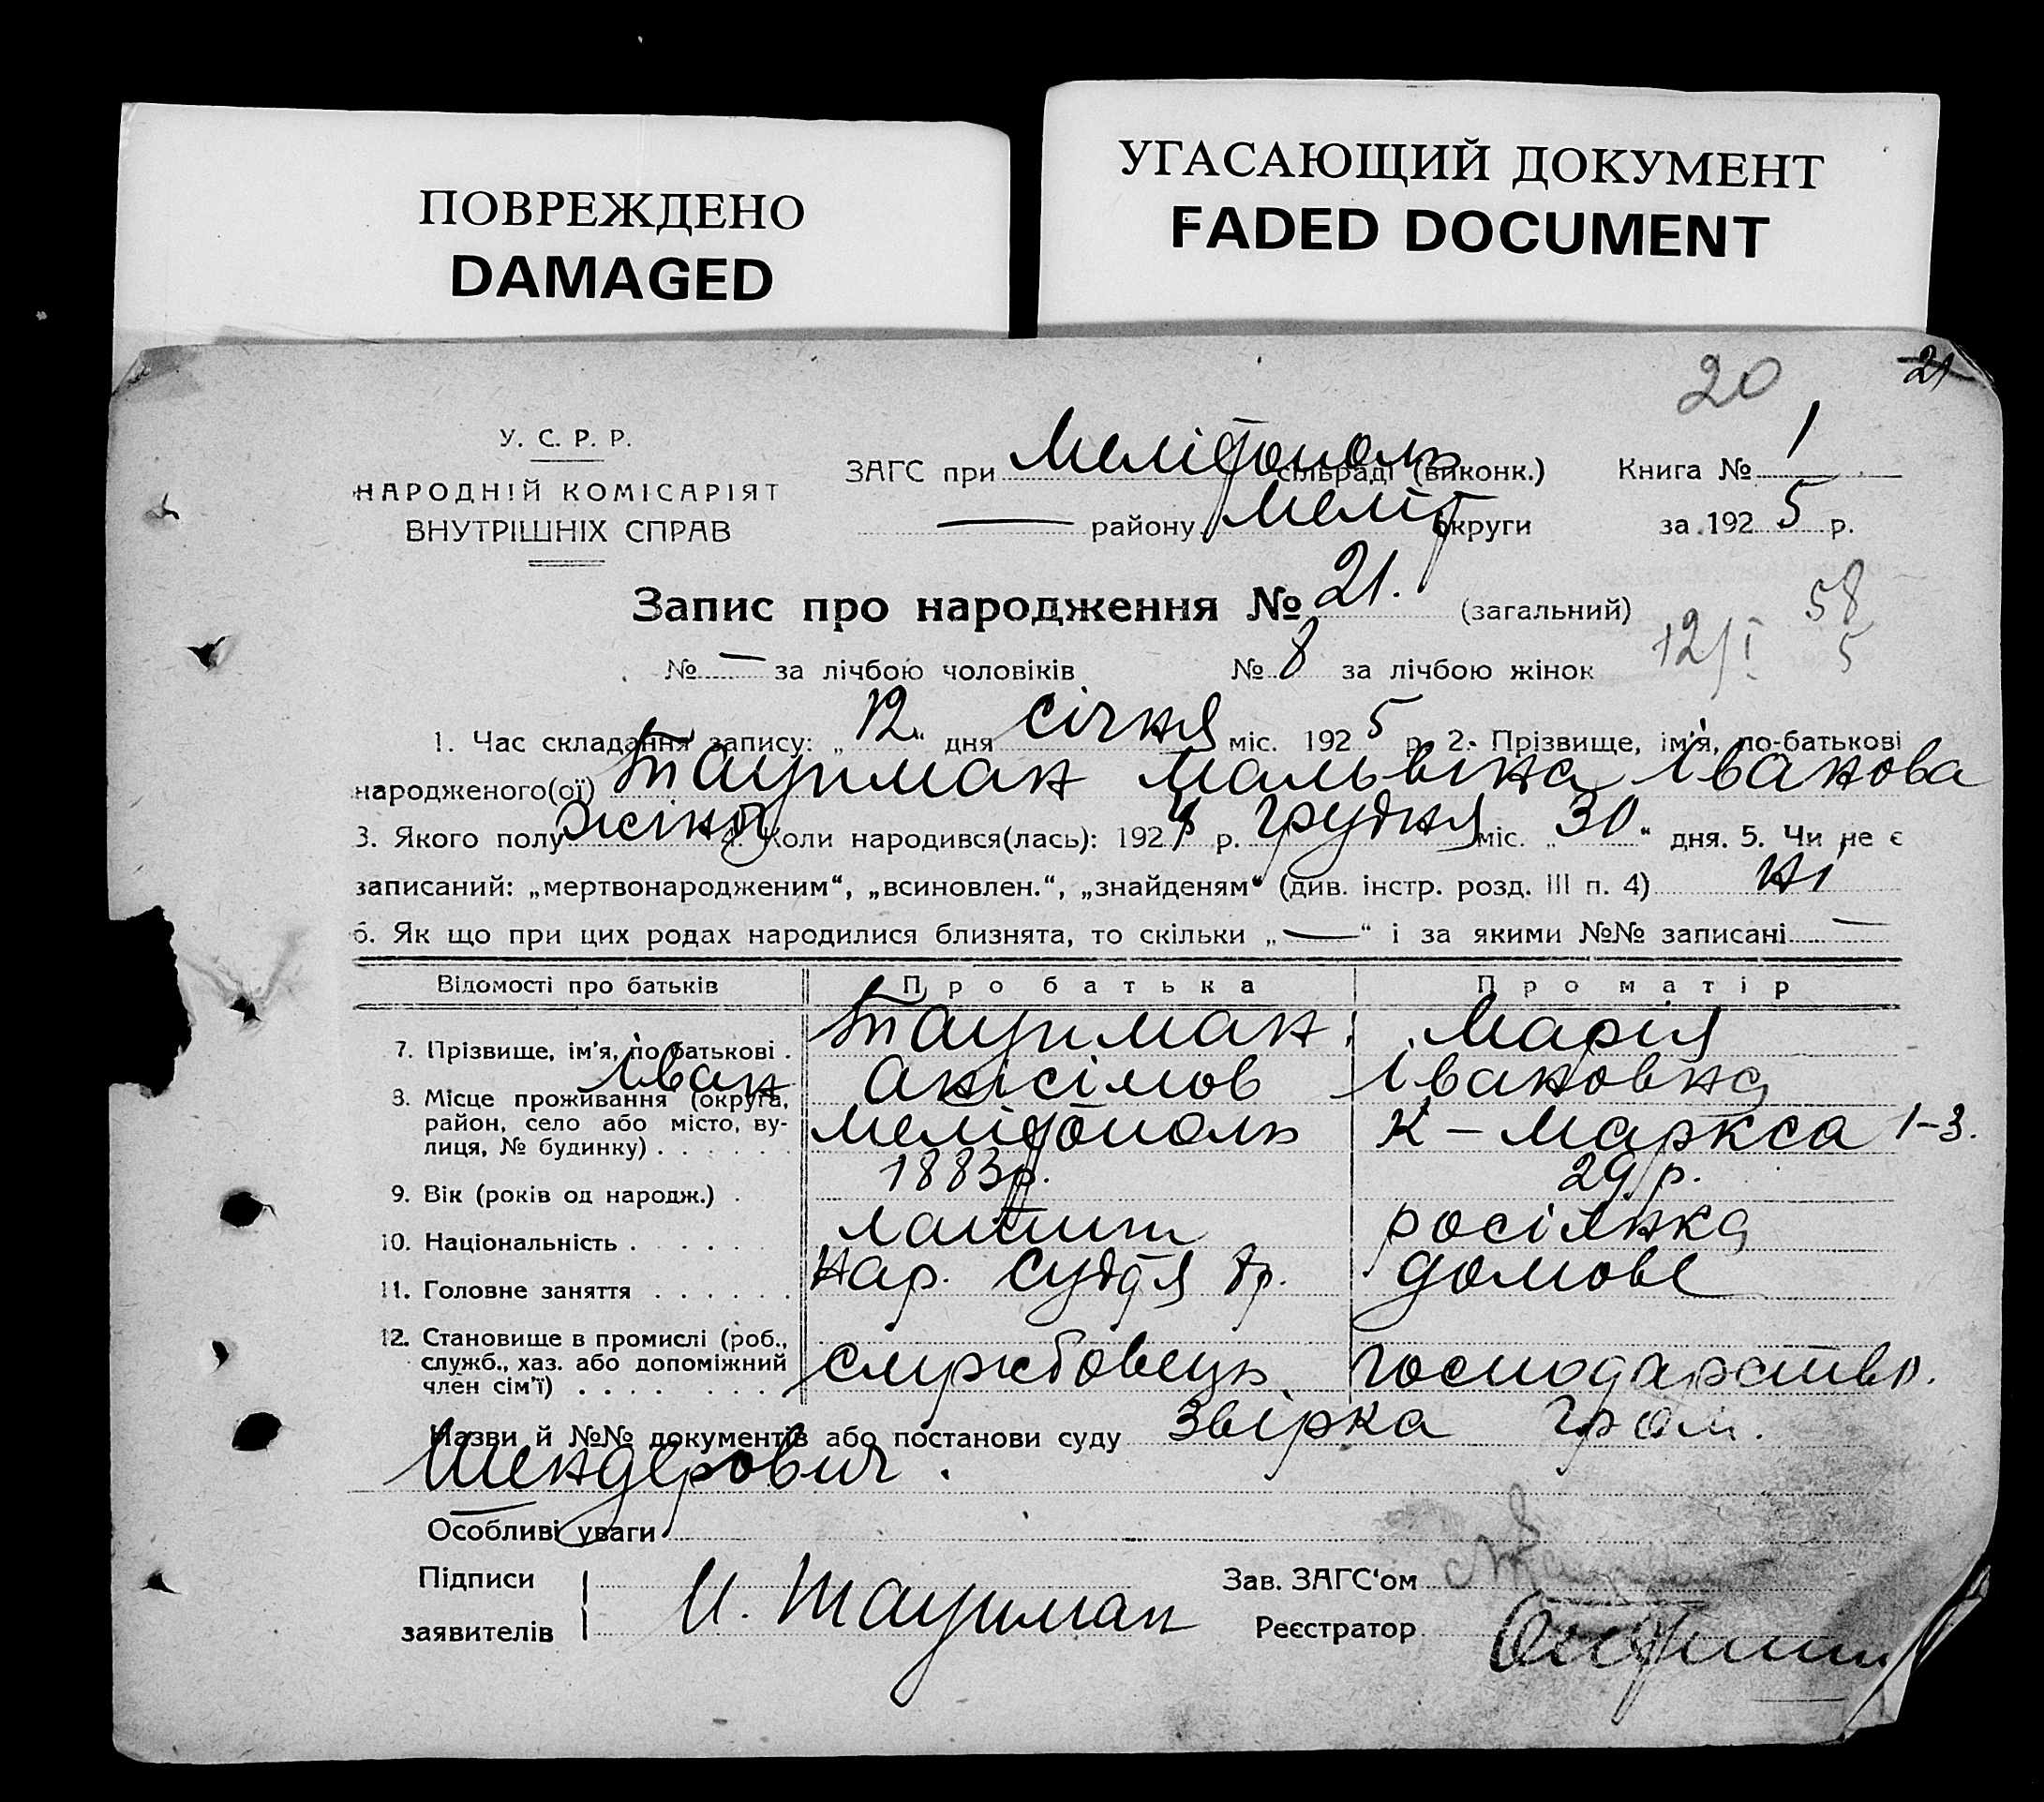 ПОВРЕЖДЕНО
DAMAGED
УГАСАЮЩИЙ ДОКУМЕНТ
FADED DOCUMENT
20 21
У. С. Р. Р.
НАРОДНІЙ КОМІСАРІЯТ
ВНУТРІШНІХ СПРАВ
ЗАГС при Мелітополь сільраді (виконк.) Книга № 1
— району Меліт округи за 1925 р.
Запис про народження № 21. (загальний) 58
№ — за лічбою чоловіків № 8 за лічбою жінок 12/I 5
1. Час складання запису: „12“ дня січня міс. 1925 р. 2. Прізвище, ім'я, по-батькові
народженого(ої) Таурман Мальвіна Іванова
3. Якого полу жіноч 4. Коли народився(лась): 1924 р. грудня міс. „30“ дня. 5. Чи не є
записаний: „мертвонародженим“, „всиновлен.“, „знайденям“ (див. інстр. розд. III п. 4) ні
6. Як що при цих родах народилися близнята, то скільки „—“ і за якими №№ записані —
Відомості про батьків Про батька Про матір
7. Прізвище, ім'я, по батькові . Таурман Мария
Іван Анісімов Івановна
8. Місце проживання (округа, район, село або місто, ву-
лиця, № будинку) . . . . . . Мелітополь К-Маркса 1-3.
9. Вік (років од народж.) . 1883р. 29 р.
10. Національність . . . . . . латиш росіянка
11. Головне заняття . . . . . . Нар. Суддя домове
12. Становище в промислі (роб.,
служб., хаз. або допоміжний
член сім'ї) . . . . . . . службовець господарство.
Назви й №№ документів або постанови суду Звірка гром.
Шендерович.
Особливі уваги
Підписи
заявителів И. Таурман
Зав. ЗАГС'ом
Реєстратор